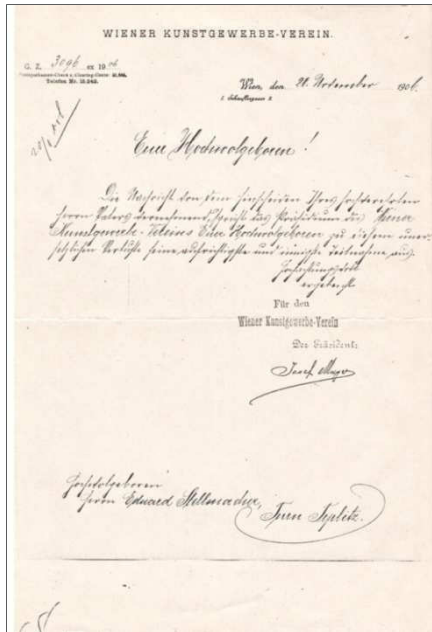 WIENER KUNSTGEWERBE-VEREIN.
G. Z. 3096 ex 1906
Telefon Nr.
Wien, den 20. November 1906
I. Schauflergasse 2
Euer Hochwolgeboren!
Die Nachricht von dem Hinscheiden Ihres hochverehrten
Herrn Vaters vernehmend, spricht das Präsidium des Wiener
Kunstgewerbe-Vereins Euer Hochwolgeboren zu diesem uner-
setzlichen Verluste seine aufrichtigste und innigste Teilnahme aus.
Hochachtungsvollst
ergebenst
Für den
Wiener Kunstgewerbe-Verein
Der Präsident:
Josef Mayer
Hochwolgeboren
Herrn Eduard Stellmacher,
Turn Teplitz.